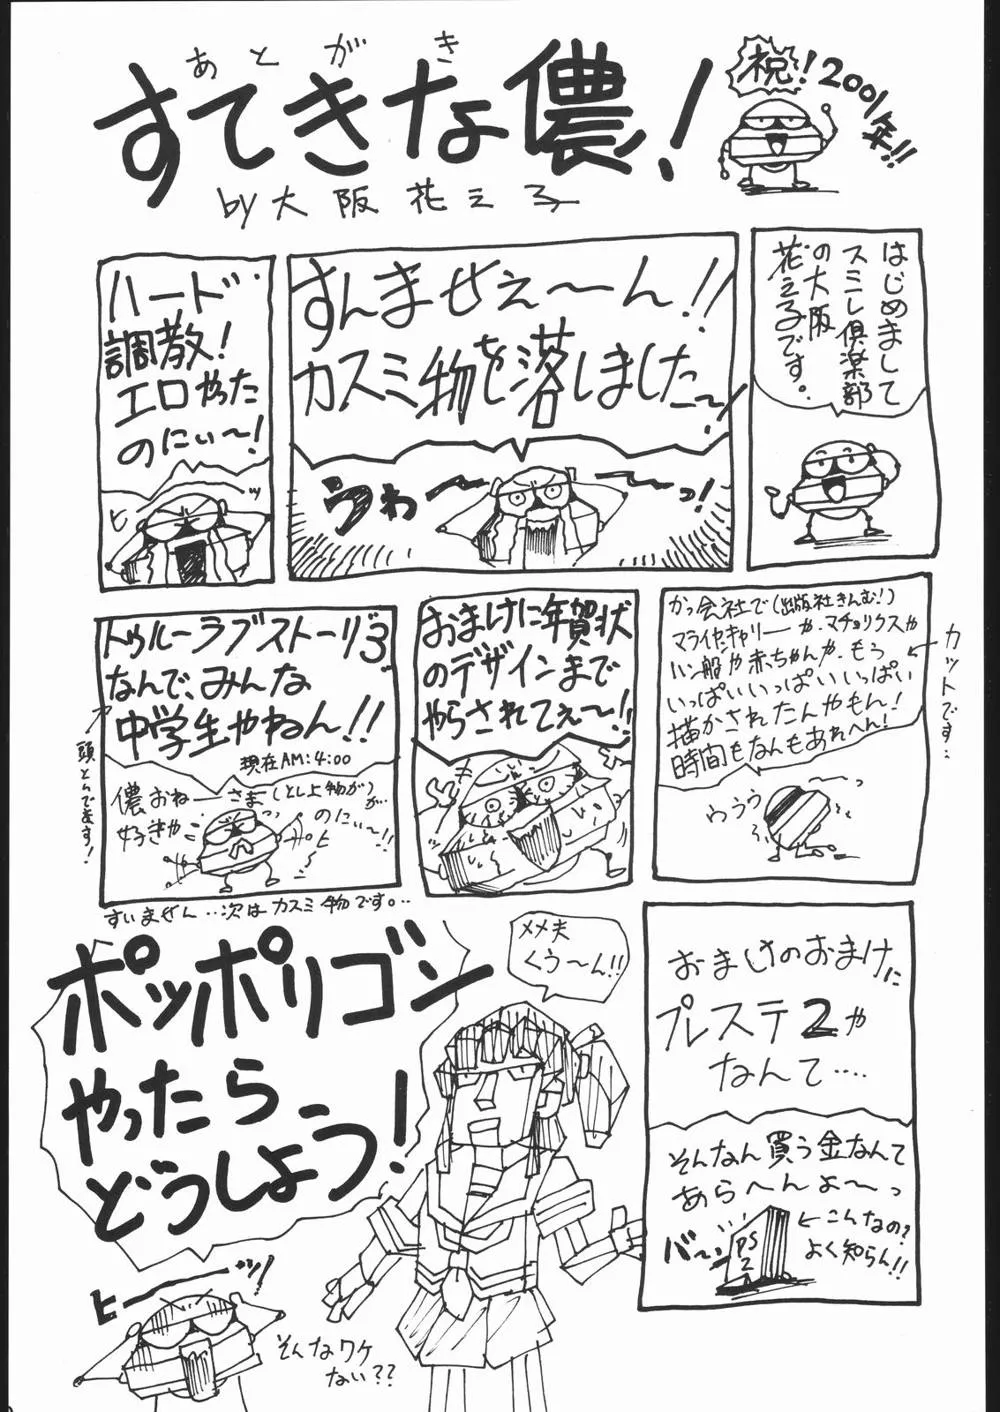 あとがき
すてきな儂!
by大阪花え子
祝!2001年!!
はじめまして
スミレ倶楽部
の大阪
花え子です。
すんませぇ〜ん!!
カスミ物を落しました〜!
うわ〜〜っ!
ハード
調教!
エロやった
のにぃ〜!
ヒーッ
かっ会社で(出版社きんむ!)
マライヤ・キャリーや、マチョリクスや
ハン般や赤ちゃんや、もう
いっぱいいっぱいいっぱい
描かされたんやもん!
時間もなんもあれへん!
←カットです…
ううう
おまけに年賀状
のデザインまで
やらされてぇ〜!!
トゥルーラブストーリー3
なんで、みんな
中学生やねん!!
現在AM:4:00
頭とんでます!
儂おねーさま(とし上物が)が…
好きや
のにぃ〜!!
すいません…次はカスミ物です。…
おまけのおまけに
プレステ2や
なんて….
そんなん買う金なんて
あらへんよ〜っ
バ〜ン
PS
2
←こんなの?
よく知らん!!
メメ夫
くぅ〜ん!!
ポッポリゴン
やったら
どうしよう!
ヒーーッ!
そんなワケ
ない??